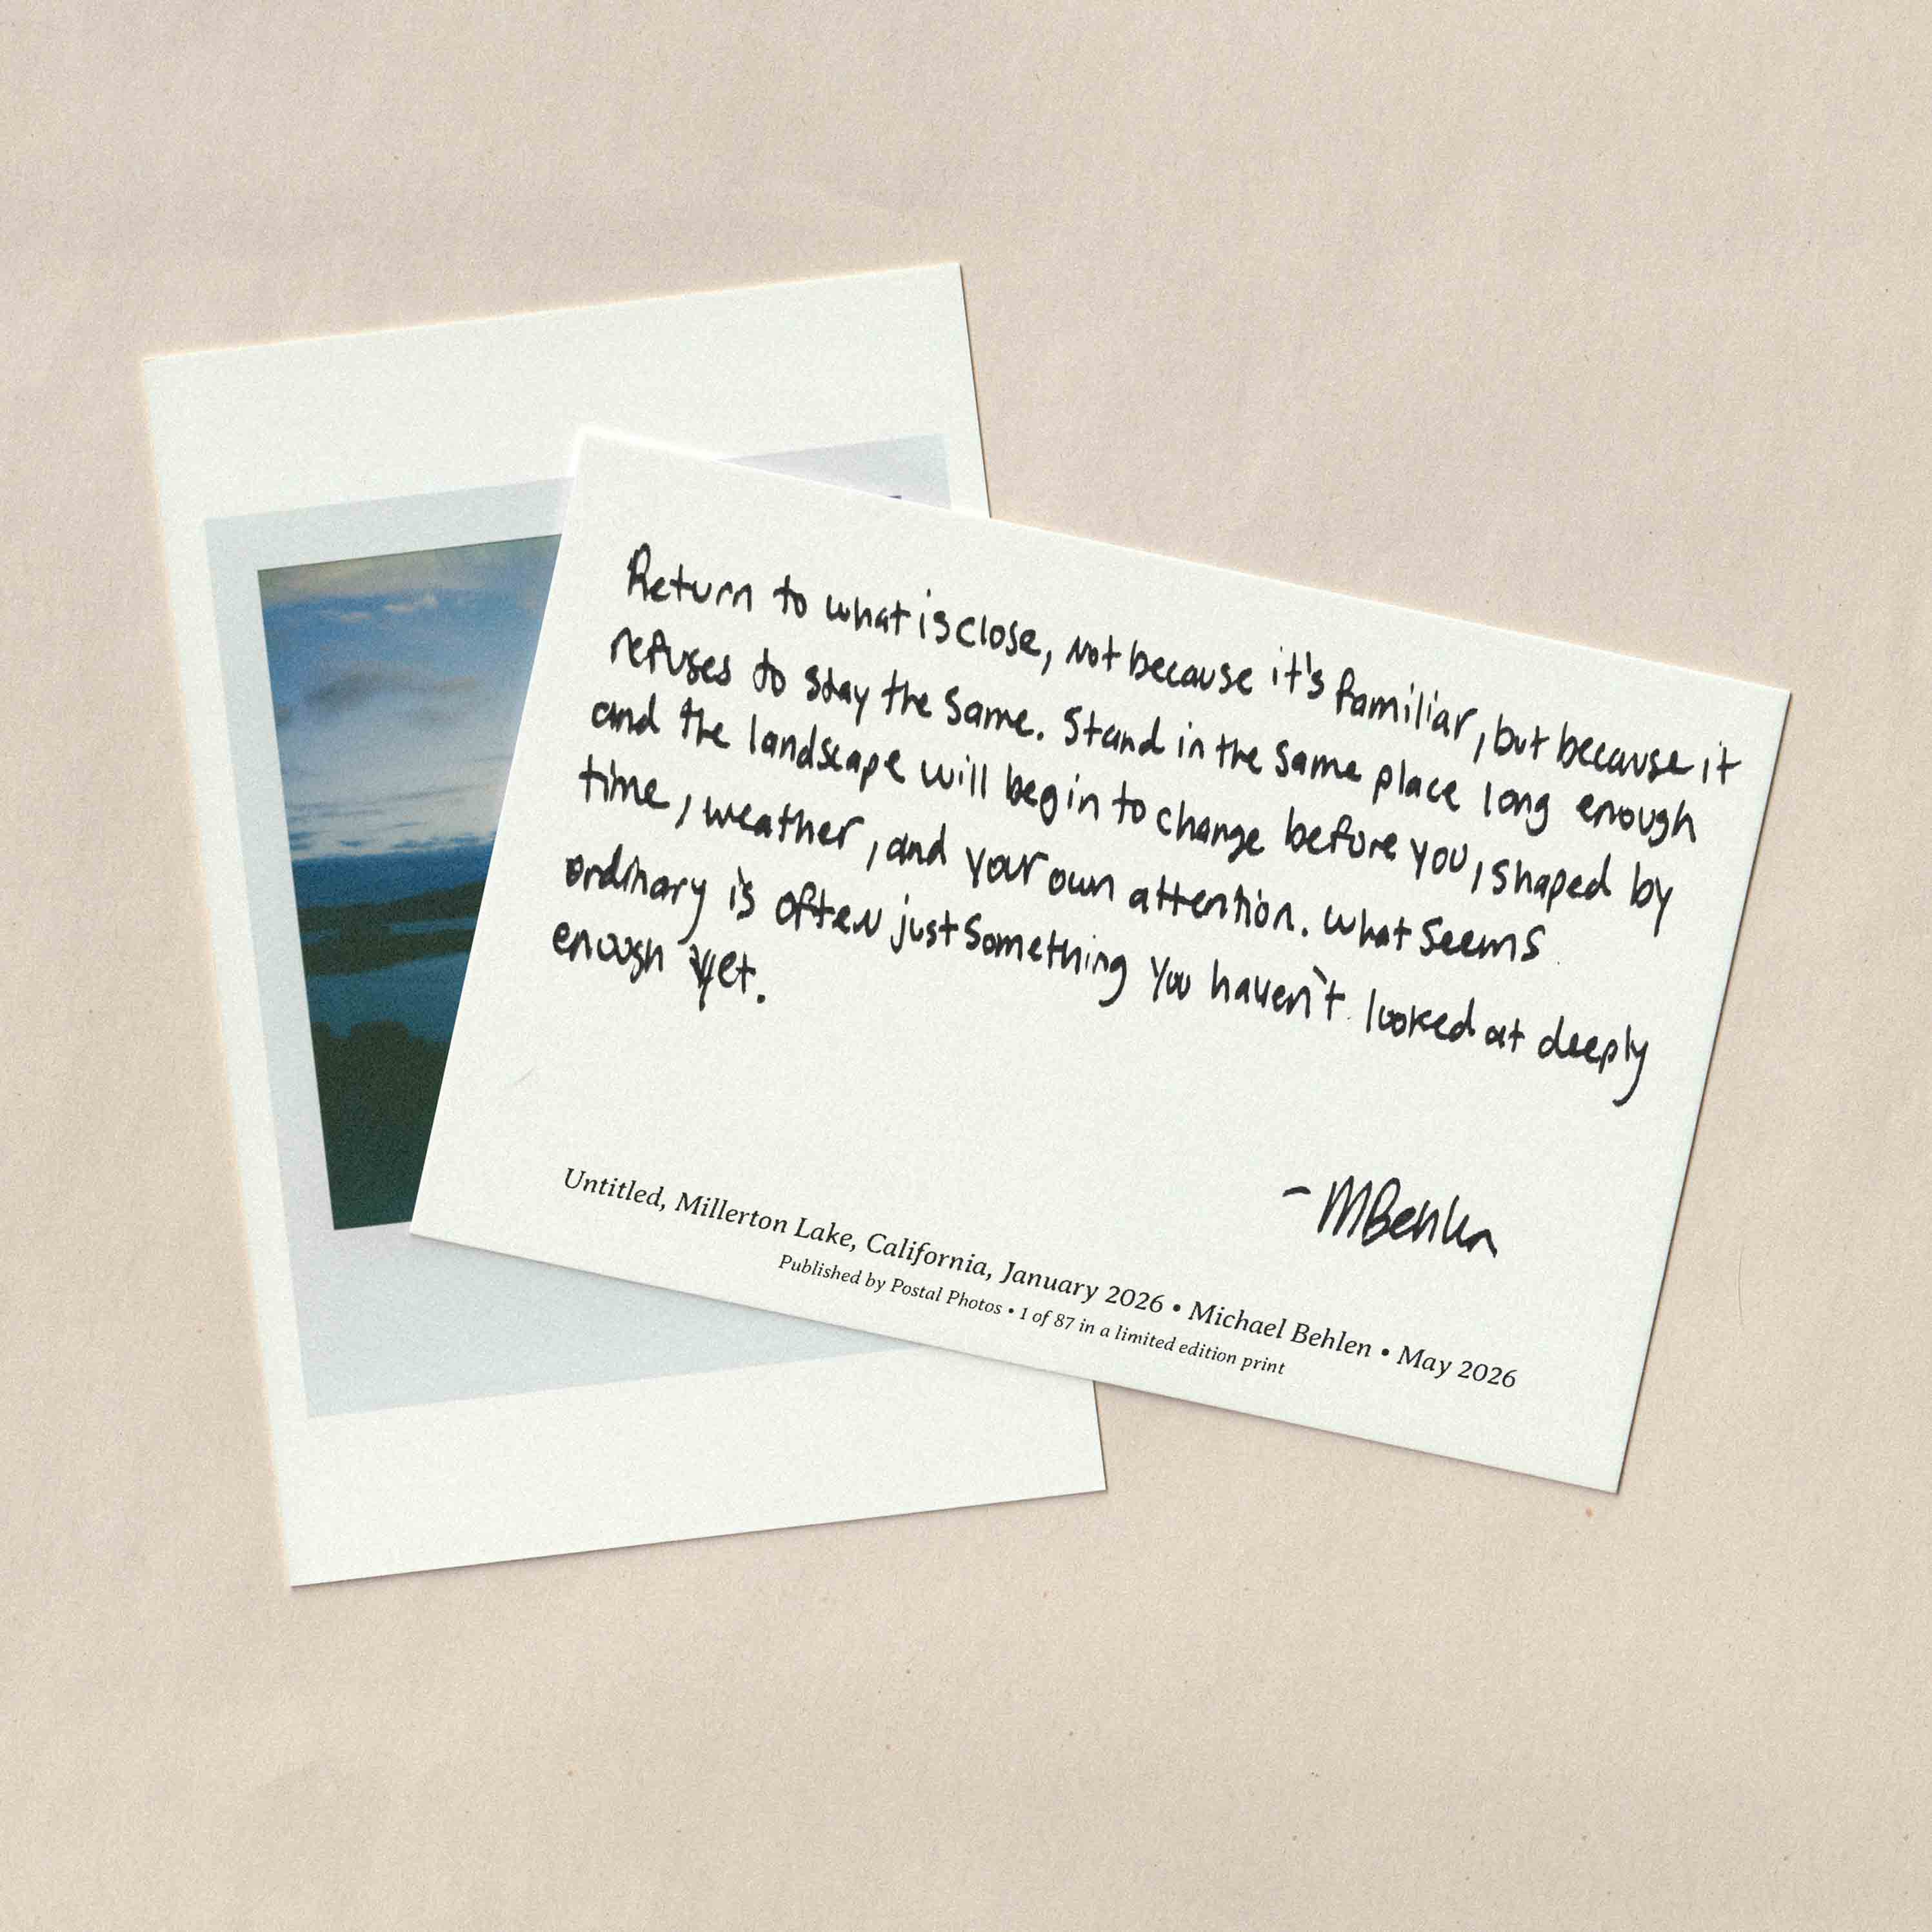 Return to what is close, not because it's familiar, but because it
refuses to stay the same. Stand in the same place long enough
and the landscape will begin to change before you, shaped by
time, weather, and your own attention. what seems
ordinary is often just something you haven't looked at deeply
enough yet.
- MBehlen
Untitled, Millerton Lake, California, January 2026 • Michael Behlen • May 2026
Published by Postal Photos • 1 of 87 in a limited edition print